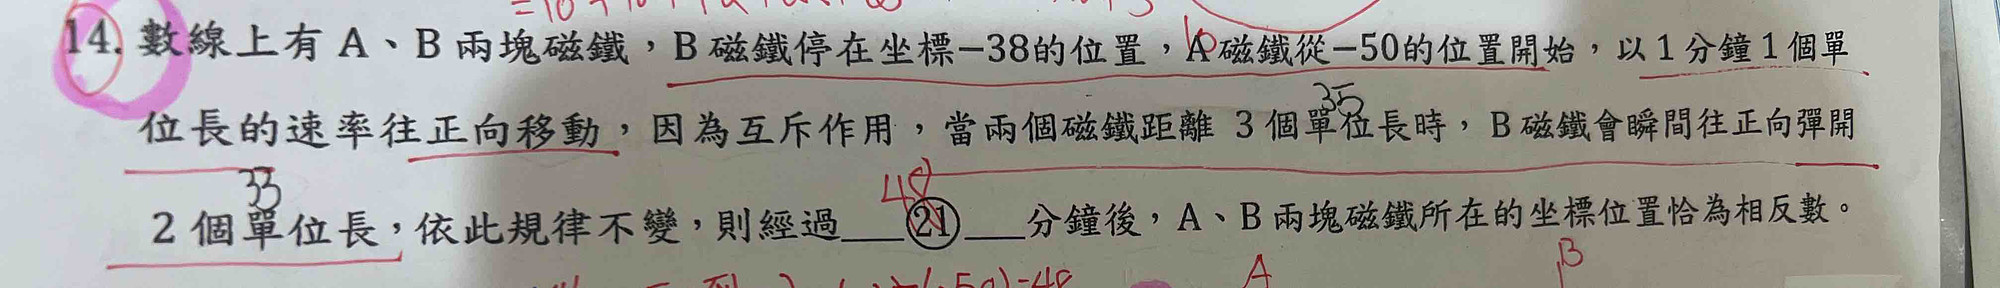 14. 數線上有 A、B 兩塊磁鐵，B 磁鐵停在坐標−38的位置，A磁鐵從−50的位置開始，以 1 分鐘 1 個單
35
位長的速率往正向移動，因為互斥作用，當兩個磁鐵距離 3 個單位長時，B 磁鐵會瞬間往正向彈開
33
48
2 個單位長，依此規律不變，則經過___㉑___分鐘後，A、B 兩塊磁鐵所在的坐標位置恰為相反數。
A B